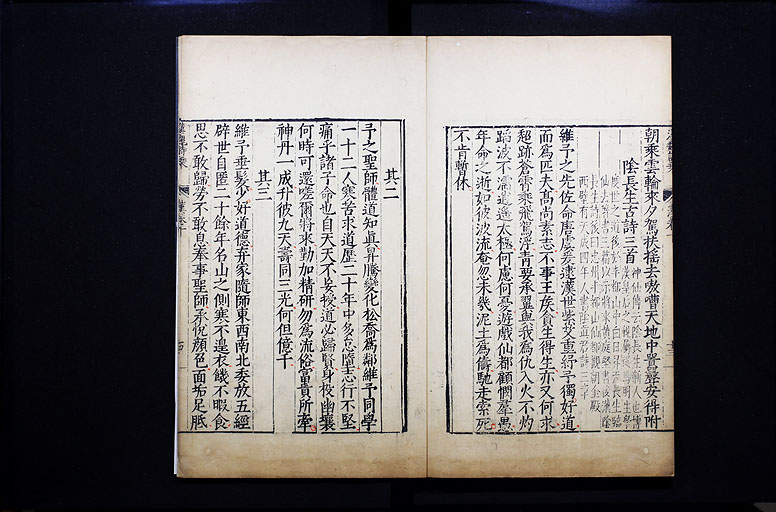 朝乘雲輪來夕駕扶搖去嗷嘈天地中囂聲安得附
陰長生古詩三首
維予之先佐命唐虞爰逮漢世紫艾重紆予獨好道
而為匹夫高尚素志不事王侯貪生得生亦又何求
超跡蒼霄乘飛駕浮青要承翼與我為仇入火不灼
蹈波不濡逍遙太極何慮何憂遊戲仙都顧憫羣愚
年命之逝如彼波流奄忽未幾泥土為儔馳走索死
不肯暫休
其二
予之聖師體道如眞昇騰變化松喬為鄰維予同學
一十二人寒苦求道歷二十年中多怠墮志行不堅
痛乎諸子命也自天天不妄授道必歸賢身投幽壤
何時可還嗟爾將來勤加精研勿為流俗富貴所牽
神丹一成升彼九天壽同三光何但億千
其三
維予垂髮少好道德弃家隨師東西南北委放五經
辟世自匿二十餘年名山之側寒不遑衣饑不暇食
思不敢歸勞不敢息奉事聖師承悅顏色面垢足胝